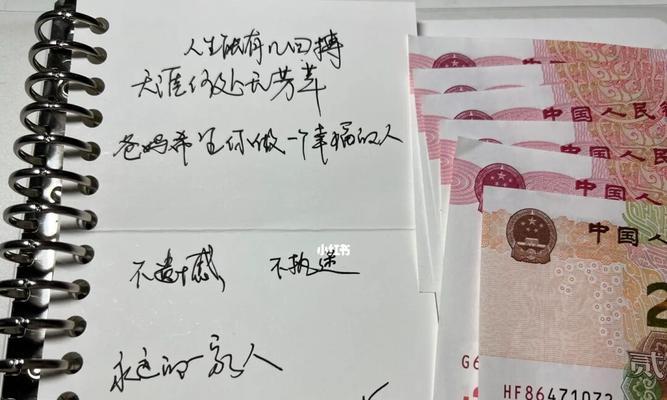 人生能有几回搏
天涯何处无芳草
爸妈希望你做一个幸福的人
不遗憾 不执迷
永远的一家人
小红书
中国人民
中国人民
中国人民
中国人
贰
G6
HF86471072